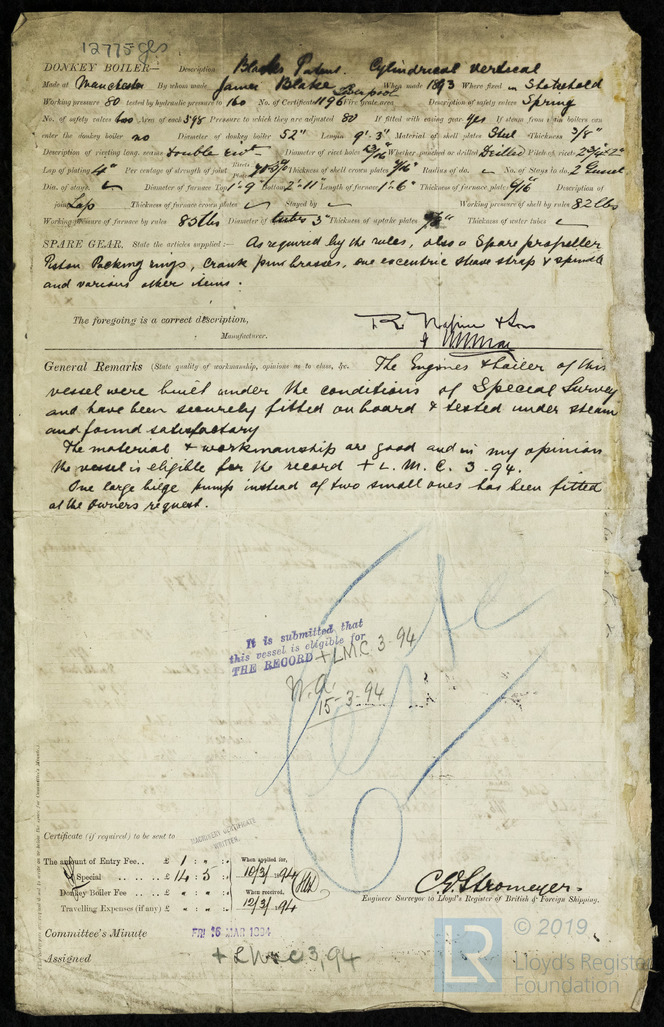 12775 gls
DONKEY BOILER— Description Blake's Patent. Cylindrical Vertical
Made at Manchester By whom made James Blake When made 1893 Where fixed in Stokehold
Working pressure 80 tested by hydraulic pressure to 160 No. of Certificate 1196 Liverpool Fire grate area Description of safety valves Spring
No. of safety valves two Area of each 5.98 Pressure to which they are adjusted 80 If fitted with easing gear yes If steam from main boilers can
enter the donkey boiler no Diameter of donkey boiler 52" Length 9'.3" Material of shell plates Steel Thickness 3/8"
Description of riveting long. seams double rivt. Diameter of rivet holes 13/16" Whether punched or drilled Drilled Pitch of rivets
Lap of plating 4" Per centage of strength of joint Rivets Plates Thickness of shell crown plates Radius of do. No. of Stays to do. 2
Dia. of stays. Diameter of furnace Top 1'-9 Bottom 2'-11" Length of furnace 1'-6" Thickness of furnace plates 9/16" Description of
joint Lap Thickness of furnace crown plates Stayed by Working pressure of shell by rules 82 lbs
Working pressure of furnace by rules 85 lbs Diameter of tubes 3" Thickness of uptake plates Thickness of water tubes
SPARE GEAR. State the articles supplied:— As required by the rules, also a Spare propeller
Piston Packing rings, Crank pin brasses, one eccentric sheave strap & spindle
and various other items.
The foregoing is a correct description,
R. Napier & Sons
Manufacturer.
General Remarks (State quality of workmanship, opinions as to class, &c. The Engines & boiler of this
vessel were built under the conditions of Special Survey
and have been securely fitted on board & tested under steam
and found satisfactory
The material & workmanship are good and in my opinion
the vessel is eligible for the record + L. M. C. 3.94.
One large bilge pump instead of two small ones has been fitted
at the owners request.
It is submitted that
this vessel is eligible for
THE RECORD + LMC 3.94
15-3-94
Certificate (if required) to be sent to
MACHINERY CERTIFICATE
WRITTEN.
The amount of Entry Fee.. £ 1 : " : When applied for,
Special .. £ 14 : 5 : 10/3/1894
Donkey Boiler Fee .. £ " : " : When received,
Travelling Expenses (if any) £ " : " : 12/3/1894
C. E. Stromeyer.
Engineer Surveyor to Lloyd's Register of British & Foreign Shipping.
Committee's Minute FRI 16 MAR 1894
Assigned + LMC 3,94
© 2019
LR
Lloyd's Register
Foundation